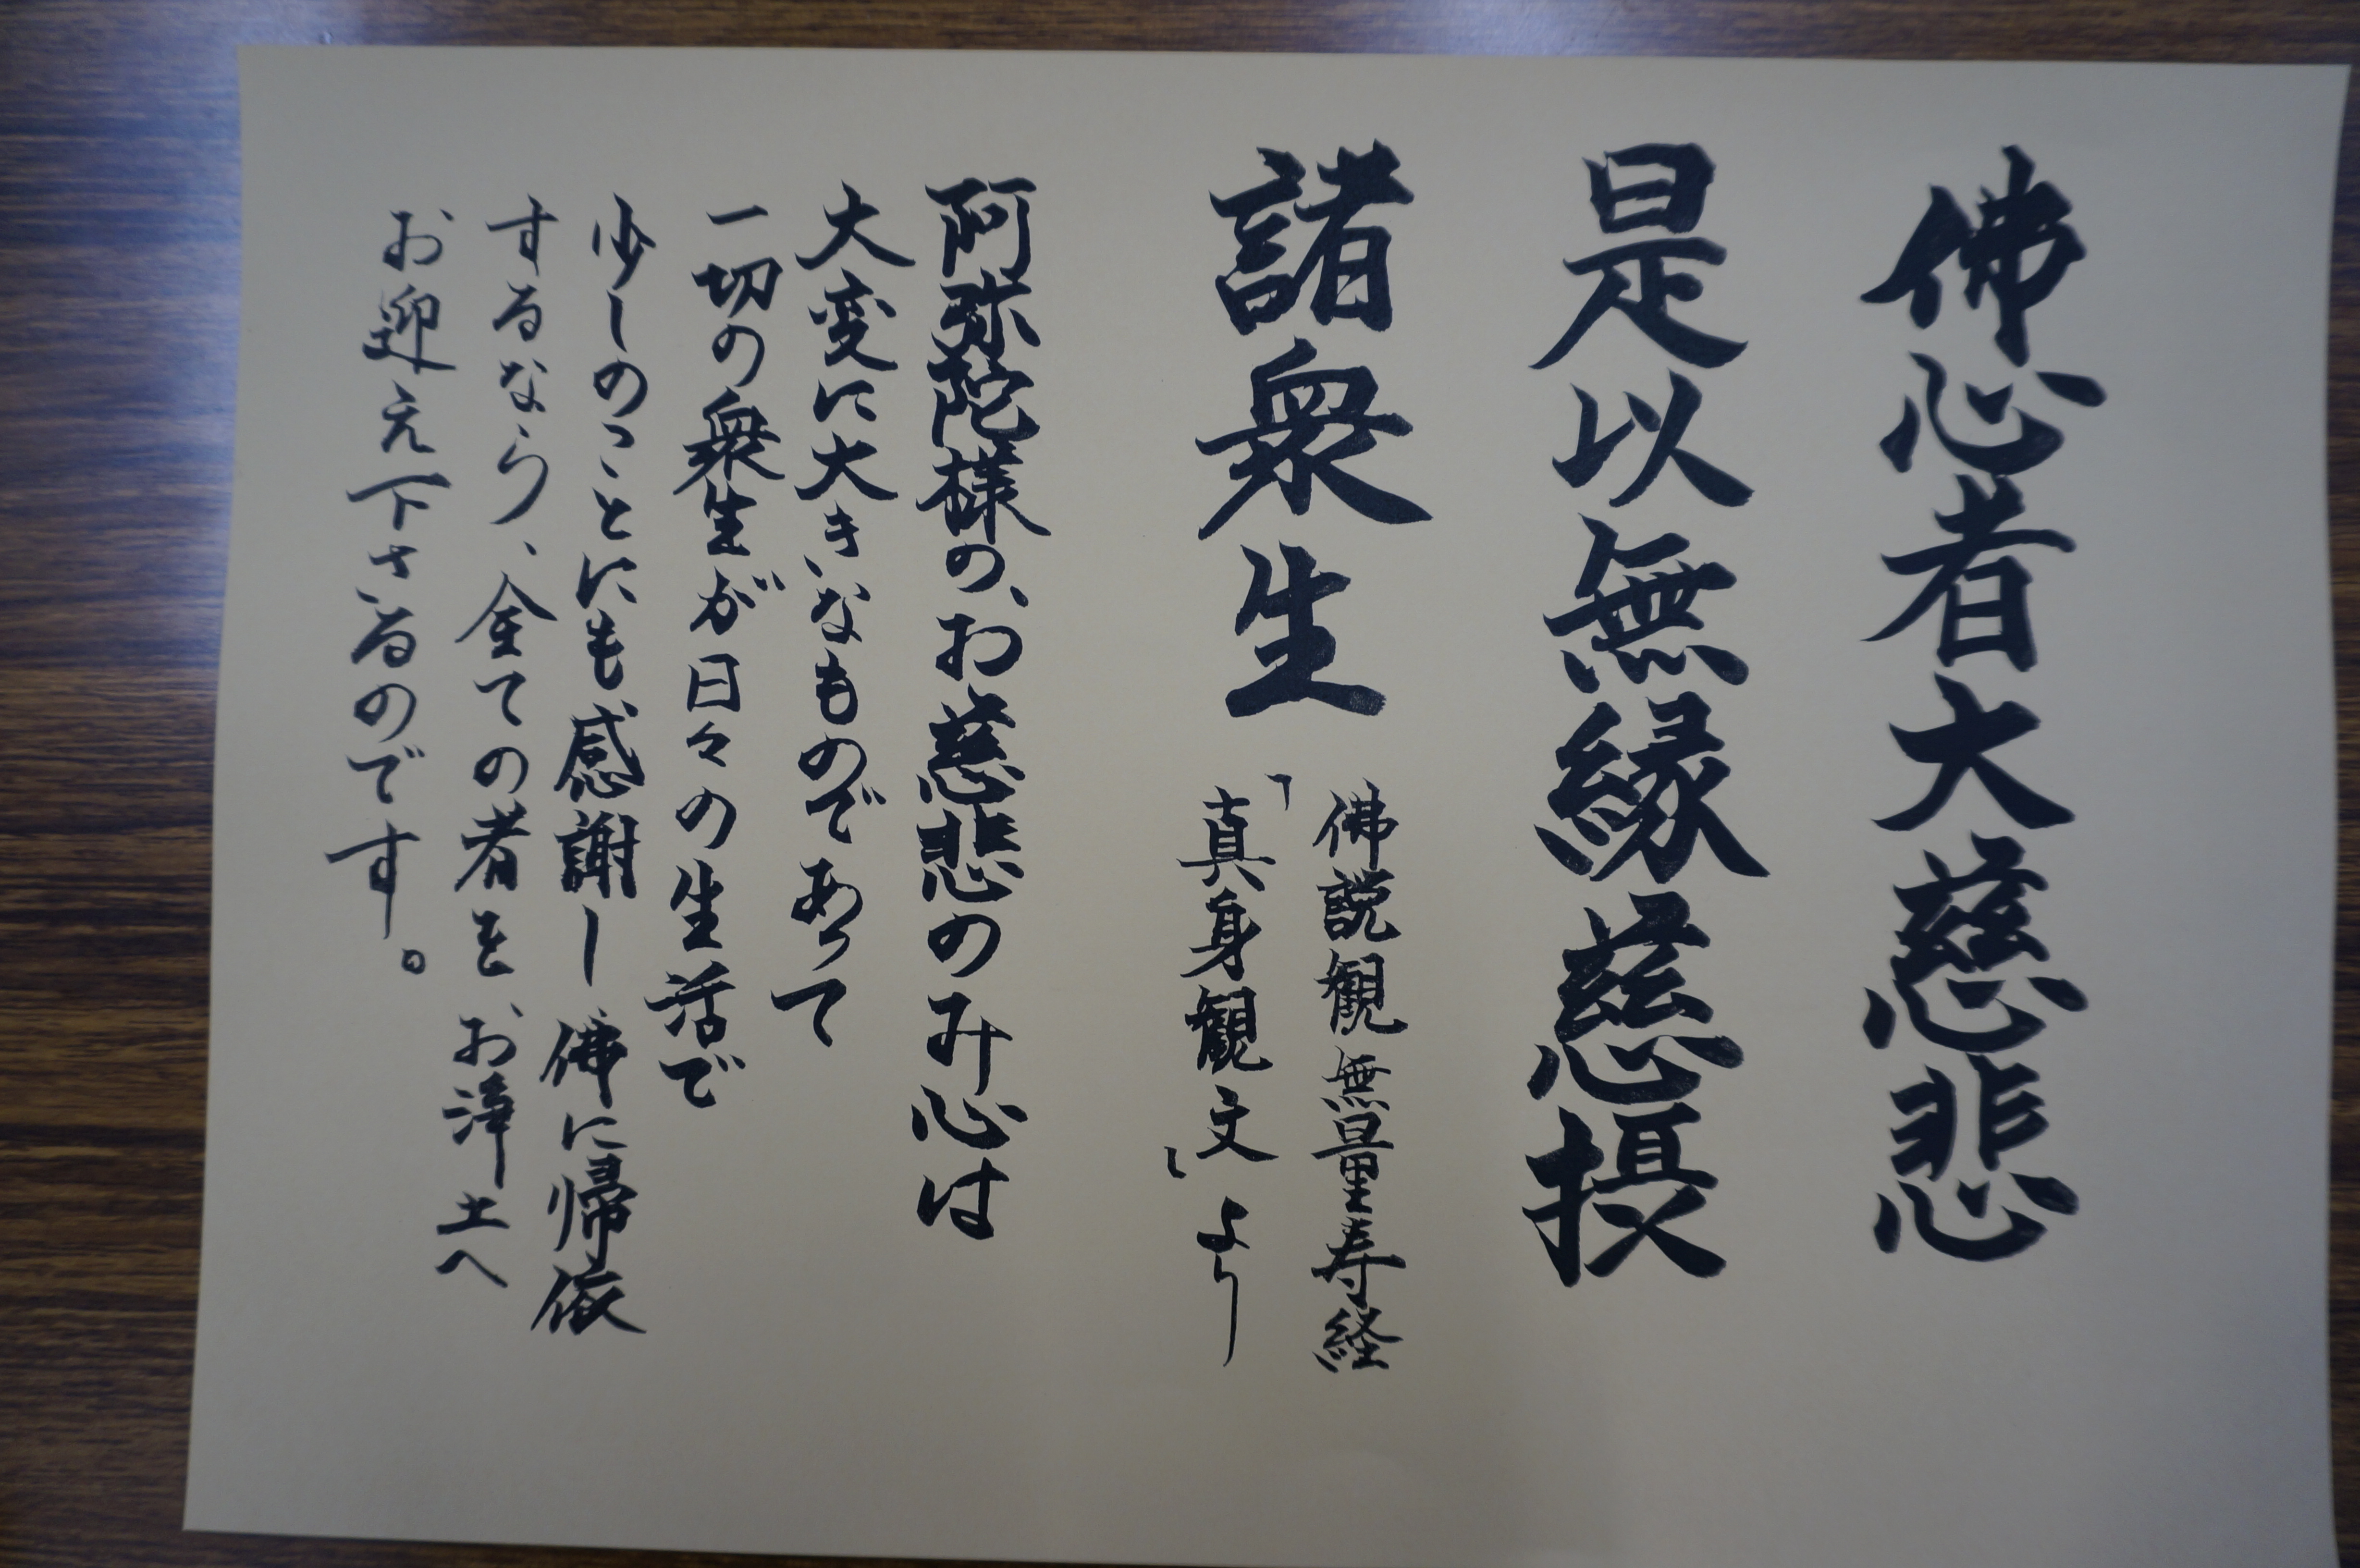 佛心者大慈悲
是以無縁慈摂
諸衆生
佛説観無量寿経
「真身観文」より
阿弥陀様の、お慈悲のみ心は
大変に大きなものであって
一切の衆生が日々の生活で
少しのことにも感謝し佛に帰依
するなら、全ての者をお浄土へ
お迎え下さるのです。